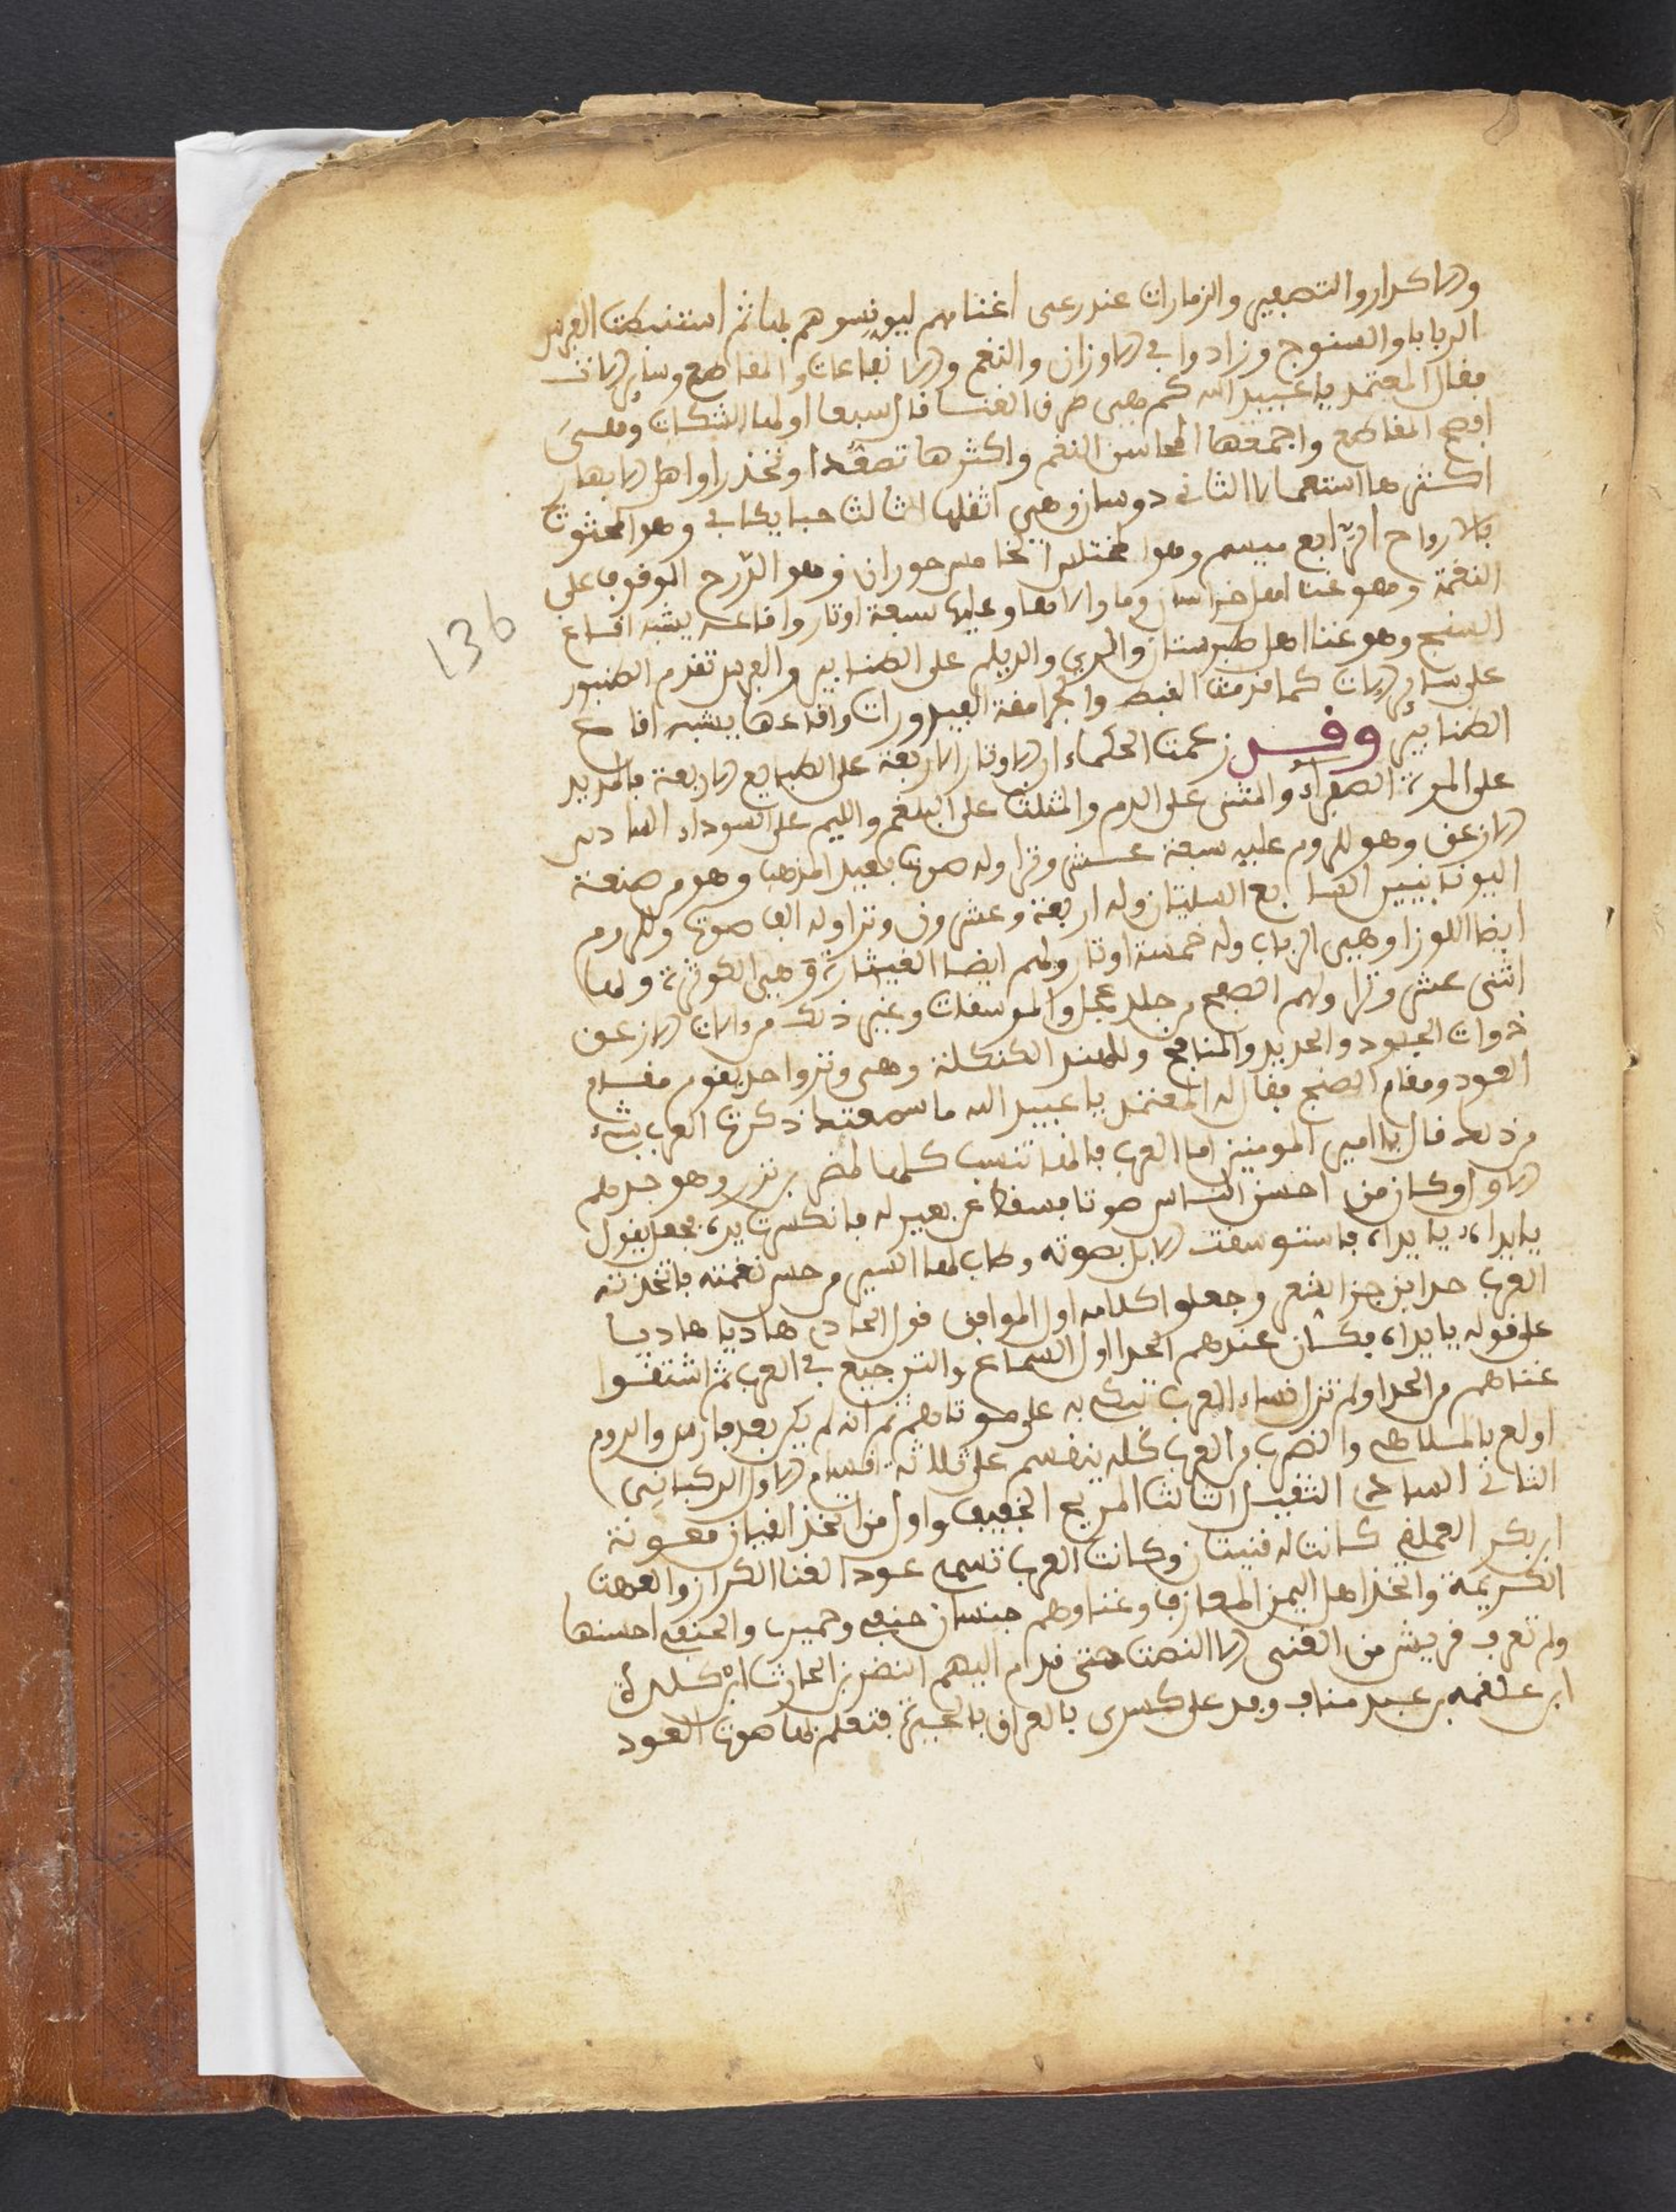 والاكرار والتصفير والزمارات عند رعى اغنامهم ليونسوهم بها ثم استنبطت الفرس
الربابا والصنوج وزادوا في الاوزان والنغم والايقاعات والمقاطع وساير الالات
فقال المعتمد يا عبيد الله كم هي طرق الغنا قال سبعا اولها الشكات وهي
افصح المقاطع واجمعها لمحاسن النغم واكثرها تصعدا وتحذرا
اكثرها استعمالا الثانى دوسازن وهي اثقلها الثالث وهو المحثوث
بالارواح الرابع وهو المختلس الخامس حوران وهو الدرج الوقوف على
النغمة وهو غنا اهل خراسان وما والاها وعليها سبعة اوتار وايقاعه يشبه ايقاع
الصنج وهو غنا اهل طبرستان والري والديلم على الطنابير والفرس تقدم الطنبور
على ساير الالات كما قدمت القبط والجرامقة وايقاعها يشبه ايقاع
الطنابير وقد زعمت الحكماء ان الاوتار الاربعة على الطبايع الاربعة فالزير
على المرة الصفراء والمثنى على الدم والمثلث على البلغم والبم على السوداء السادس
الارغن وهو للروم عليه سبعة عشر وترا وله صوت بعيد المذهب وهو من صنعة
اليونانيين السابع السليتان وله اربعة وعشرون وترا وله الف صوت وللروم
ايضا اللوزا وهي الرباب وله خمسة اوتار ولهم ايضا القيثارة وهي الكوثرة ولها
اثنى عشر وترا ولهم الصلبج من جلد عجل والموسقات وغير ذلك من الات الارغن
ذوات الجلود والحديد والمنافخ وللهند الكنكلة وهى وتر واحد يقوم مقام
العود ومقام الصنج فقال له المعتمد يا عبيد الله ما سمعتك ذكرت العرب بشىء
من ذلك قال يا امير المومنين اما العرب فانها تنسب كلها لمضر بن نزار وهو جدهم
الاول وكان من احسن الناس صوتا فسقط عن بعير له فانكسرت يده فجعل يقول
يا يداه يا يداه فاستوسقت الابل بصوته وطاب لها السير من حسن نغمته فاتخذته
العرب حدا برجز الشعر وجعلوا كلامه اول الموافق قول الحادى هاديا هاديا
على قوله يا يداه فكان عندهم الحدا اول السماع والترجيع في العرب ثم اشتقوا
غناهم من الحدا ولم تزل نساء العرب تبكى به على موتاهم ثم انه لم يكن بعد فارس والروم
اولع بالملاهى والطرب من العرب كله ينقسم على ثلاثة اقسام الاول الركبانى
الثانى السناد الثقيل الثالث الهزج الخفيف واول من اتخذ القيان معوية
ابن بكر العملقى كانت له قينتان وكانت العرب تسمى عود الغنا الكران والعود
الكريمة واتخذ اهل اليمن المعازف وغناوهم جنسان حنفى وحميرى والحنفى احسنها
ولم تعرف قريش من الغنى الا النصب حتى قدم اليهم النضر بن الحارث ابن كلدة
ابن علقمه بن عبد مناف وفد على كسرى بالعراق بالحيرة فتعلم بها صوت العود
136